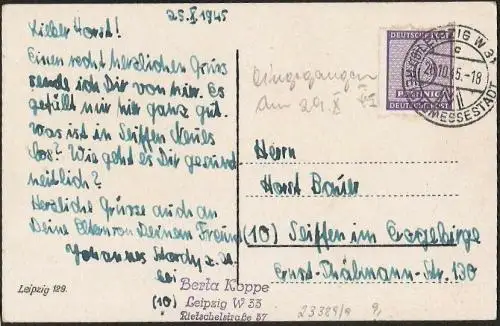 25. X. 1945
Lieber Horst!
Einen recht herzlichen Gruss
sende ich Dir von hier. Es
gefällt mir hier ganz gut.
Was ist in Seiffen Neues
los? Wie geht es Dir gesund-
heitlich?
Herzliche Grüsse auch an
Deine Eltern von Deinem Freund
Johannes z. Zt.
bei
Berta Koppe
(10) Leipzig W 33
Rietschelstraße 57
Leipzig 129.
DEUTSCHE POST
PFENNIG
DEUTSCHE POST
LEIPZIG W 31
c
26.10.45.-18
MESSESTADT
Eingegangen
am 29. X. 45
Herrn
Horst Bauer
(10) Seiffen im Erzgebirge
Ernst-Thälmann-Str. 130
23389/a